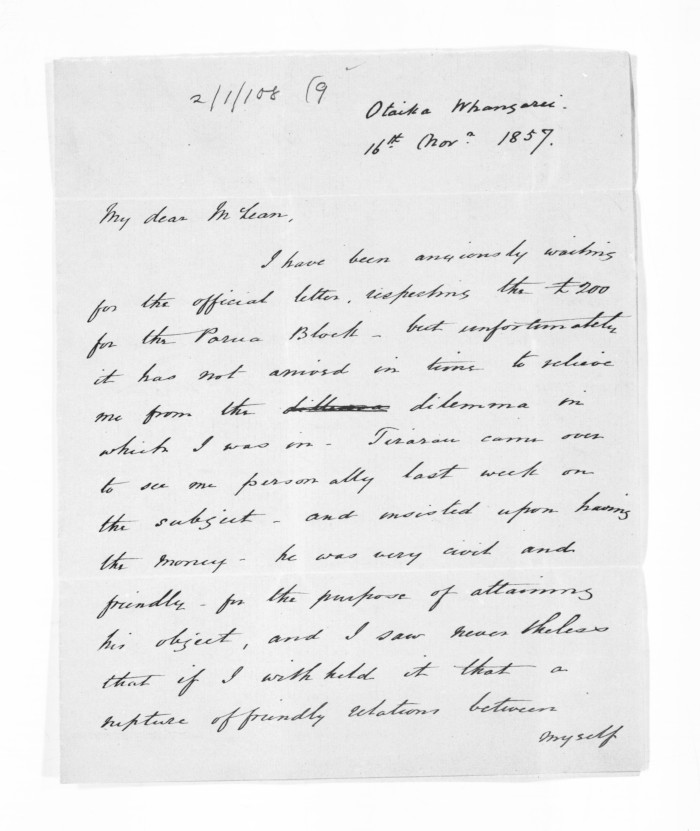 2/1/108 (9
Otaika Whangarei.
16th Novr 1857.
My dear McLean,
I have been anxiously waiting
for the official letter, respecting the £200
for the Parua Block - but unfortunately
it has not arrived in time to relieve
me from the dilemma in
which I was in - Tirarau came over
to see me personally last week on
the subject - and insisted upon having
the money - he was very civil and
friendly - for the purpose of attaining
his object, and I saw nevertheless
that if I withheld it that a
rupture of friendly relations between
myself